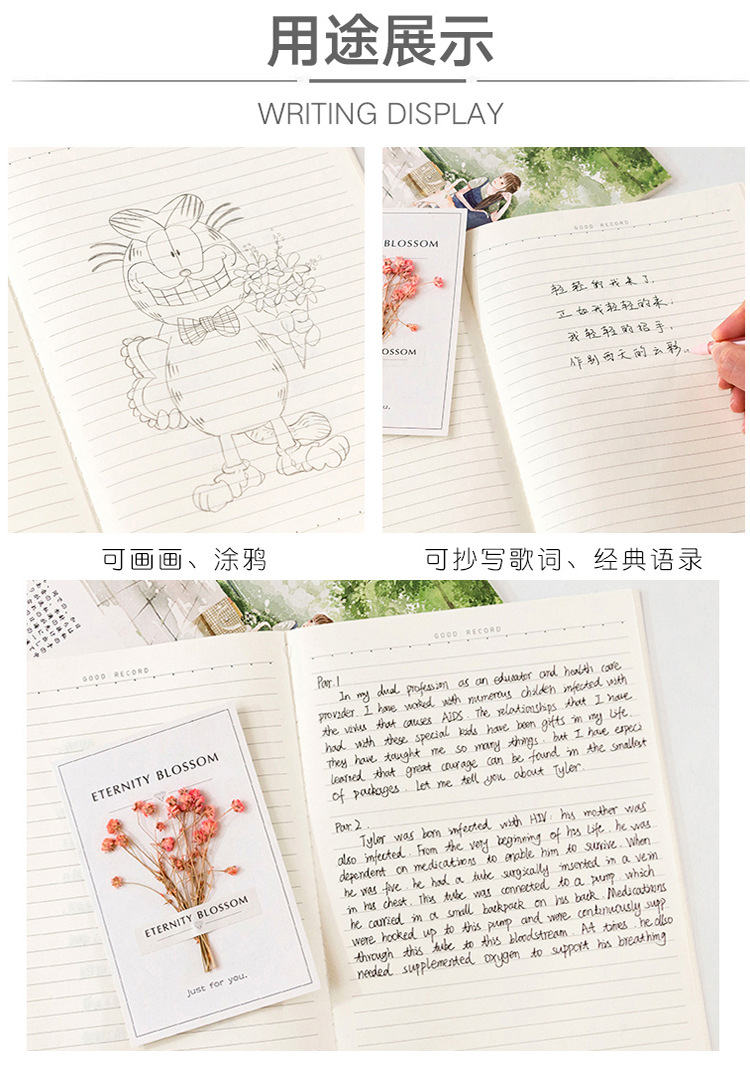 用途展示
WRITING DISPLAY
BLOSSOM
BLOSSOM
you.
GOOD RECORD
轻轻的我走了,
正如我轻轻的来;
我轻轻的招手,
作别西天的云彩。
可画画、涂鸦
可抄写歌词、经典语录
GOOD RECORD
ETERNITY BLOSSOM
ETERNITY BLOSSOM
Just for you.
GOOD RECORD
Par.1
In my dual profession as an educator and health care
provider. I have worked with numerous childen infected with
the virus that causes AIDS. The relationships that I have
had with these special kids have been gifts in my life.
They have taught me so many things. but I have especi
learned that great courage can be found in the smallest
of packages. Let me tell you about Tyler.
Par.2.
Tyler was born infected with HIV: his mother was
also infected. From the very beginning of his life. he was
dependent on medications to enable him to survive. When
he was five. he had a tube surgically inserted in a vein
in his chest. This tube was connected to a pump. which
he carried in a small backpack on his back. Medications
were hooked up to this pump and were continuously supp
through this tube to this bloodstream. At times. he also
needed supplemented oxygen to support his breathing